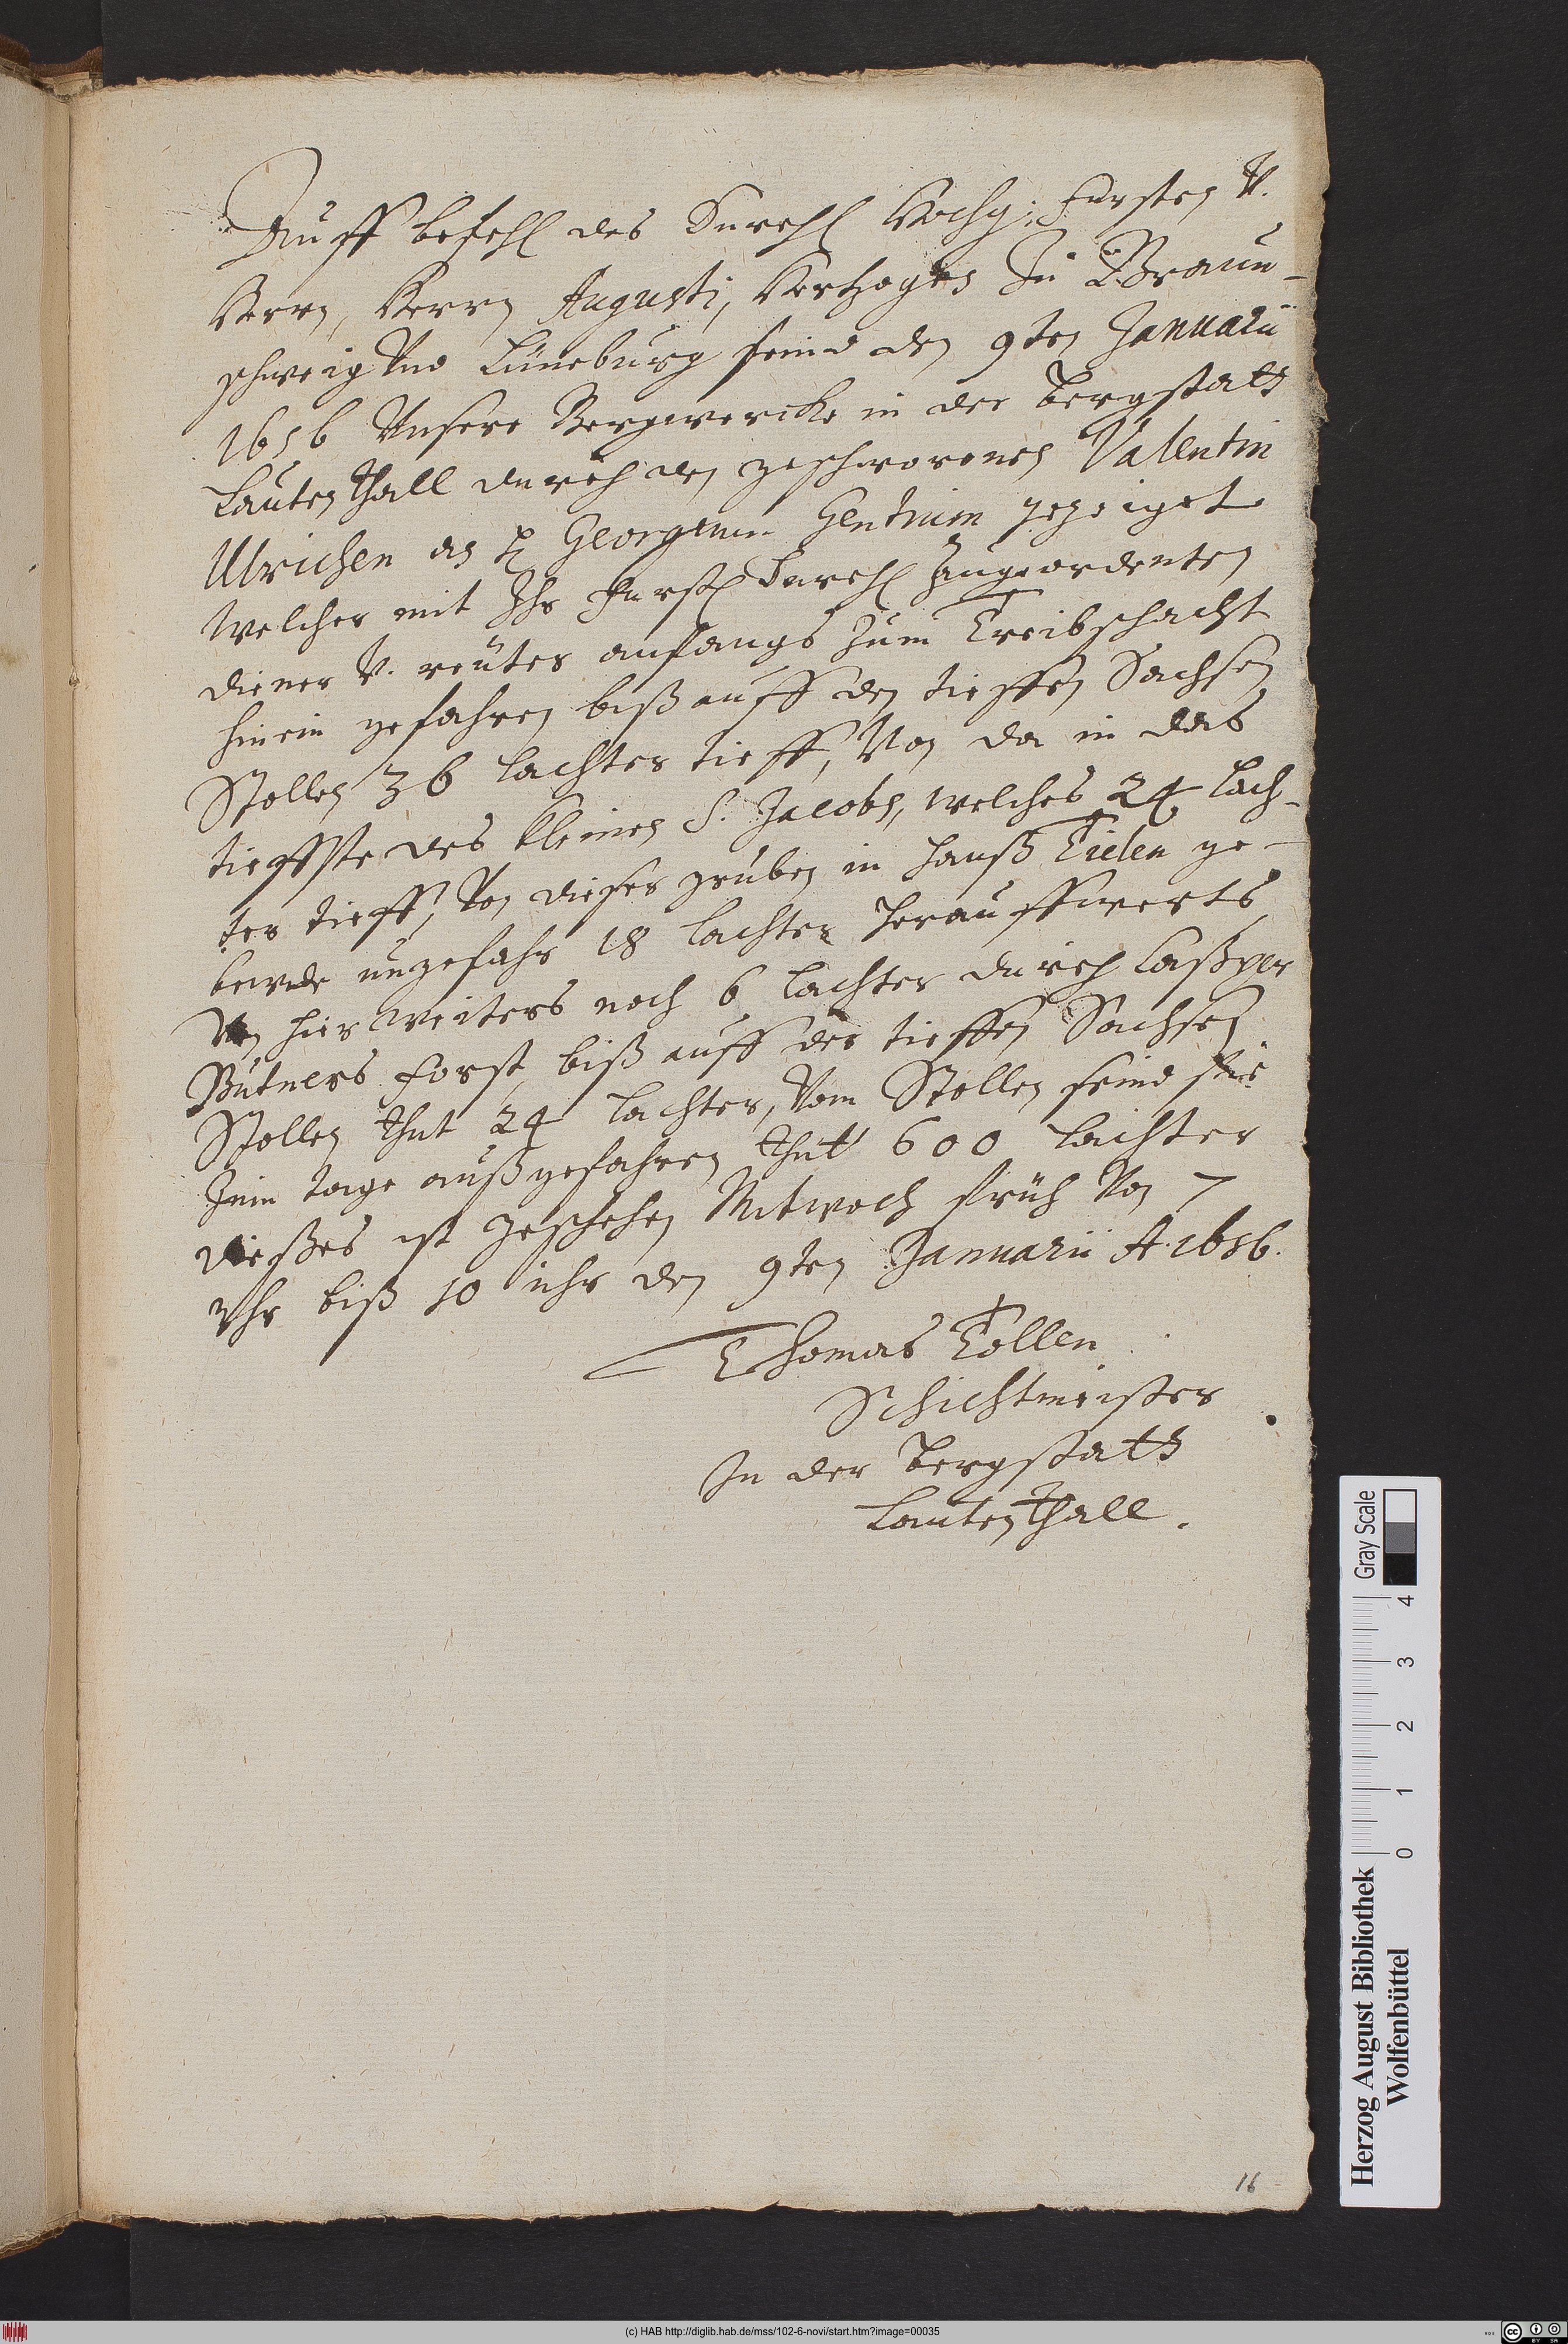 Auff befehl des Durchl Hochg: Fursten V.
Herrn, Herrn Augusti, Hertzogen Zu Braun-
schweig Vnd Lüneburg seind den 9ten Januarii
1656 Vnsere Bergwercke in der Bergstatt
Lautenthall durch den geschworenen Valentin
Ulrichen an H Georgium Gentnim gezeiget
Welcher mit Ihr Furstl Durchl Zugeordenten
diener V. reuter anfangs Zum Treibschacht
hinein gefahren biß auff den tieffen Sachsen
Stollen 36 lachter tieff, Von da in das
tieffste des kleinen S. Jacobs, welches 24 Lach-
ter tieff, Von dieser gruben in hanß Tielen ge-
beude ungefahr 18 lachter herauffwerts
Von hier weiters noch 6 lachter durch Caßper
Bütners Forst, biß auff der tieffen Sachsen
Stollen thut 24 lachter, Vom Stollen seind sie
Zum tage außgefahren thut 600 lachter
dießes ist geschehen Mitwoch früh Von 7
Vhr biß 10 uhr den 9ten Januarii A. 1656.
Thomas Tollen
Schichtmeister
In der Bergstatt
Lautenthall.
16
Herzog August Bibliothek
Wolfenbüttel
0 1 2 3 4
Gray Scale
(c) HAB http://diglib.hab.de/mss/102-6-novi/start.htm?image=00035